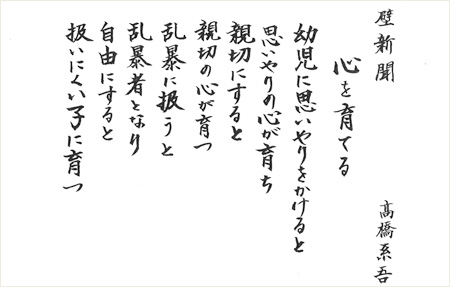 壁新聞
心を育てる
髙橋系吾
幼児に思いやりをかけると
思いやりの心が育ち
親切にすると
親切の心が育つ
乱暴に扱うと
乱暴者となり
自由にすると
扱いにくい子に育つ